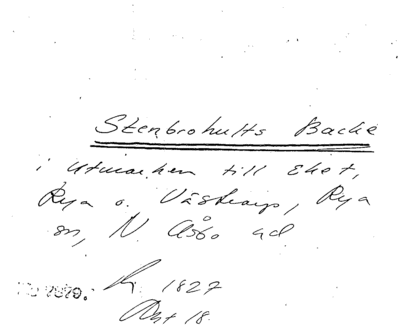 Stenbrohults Backe
i utmarken till Ekot,
Rya o. Västraryp, Rya
sn, N. Åsbo hd
1827
18